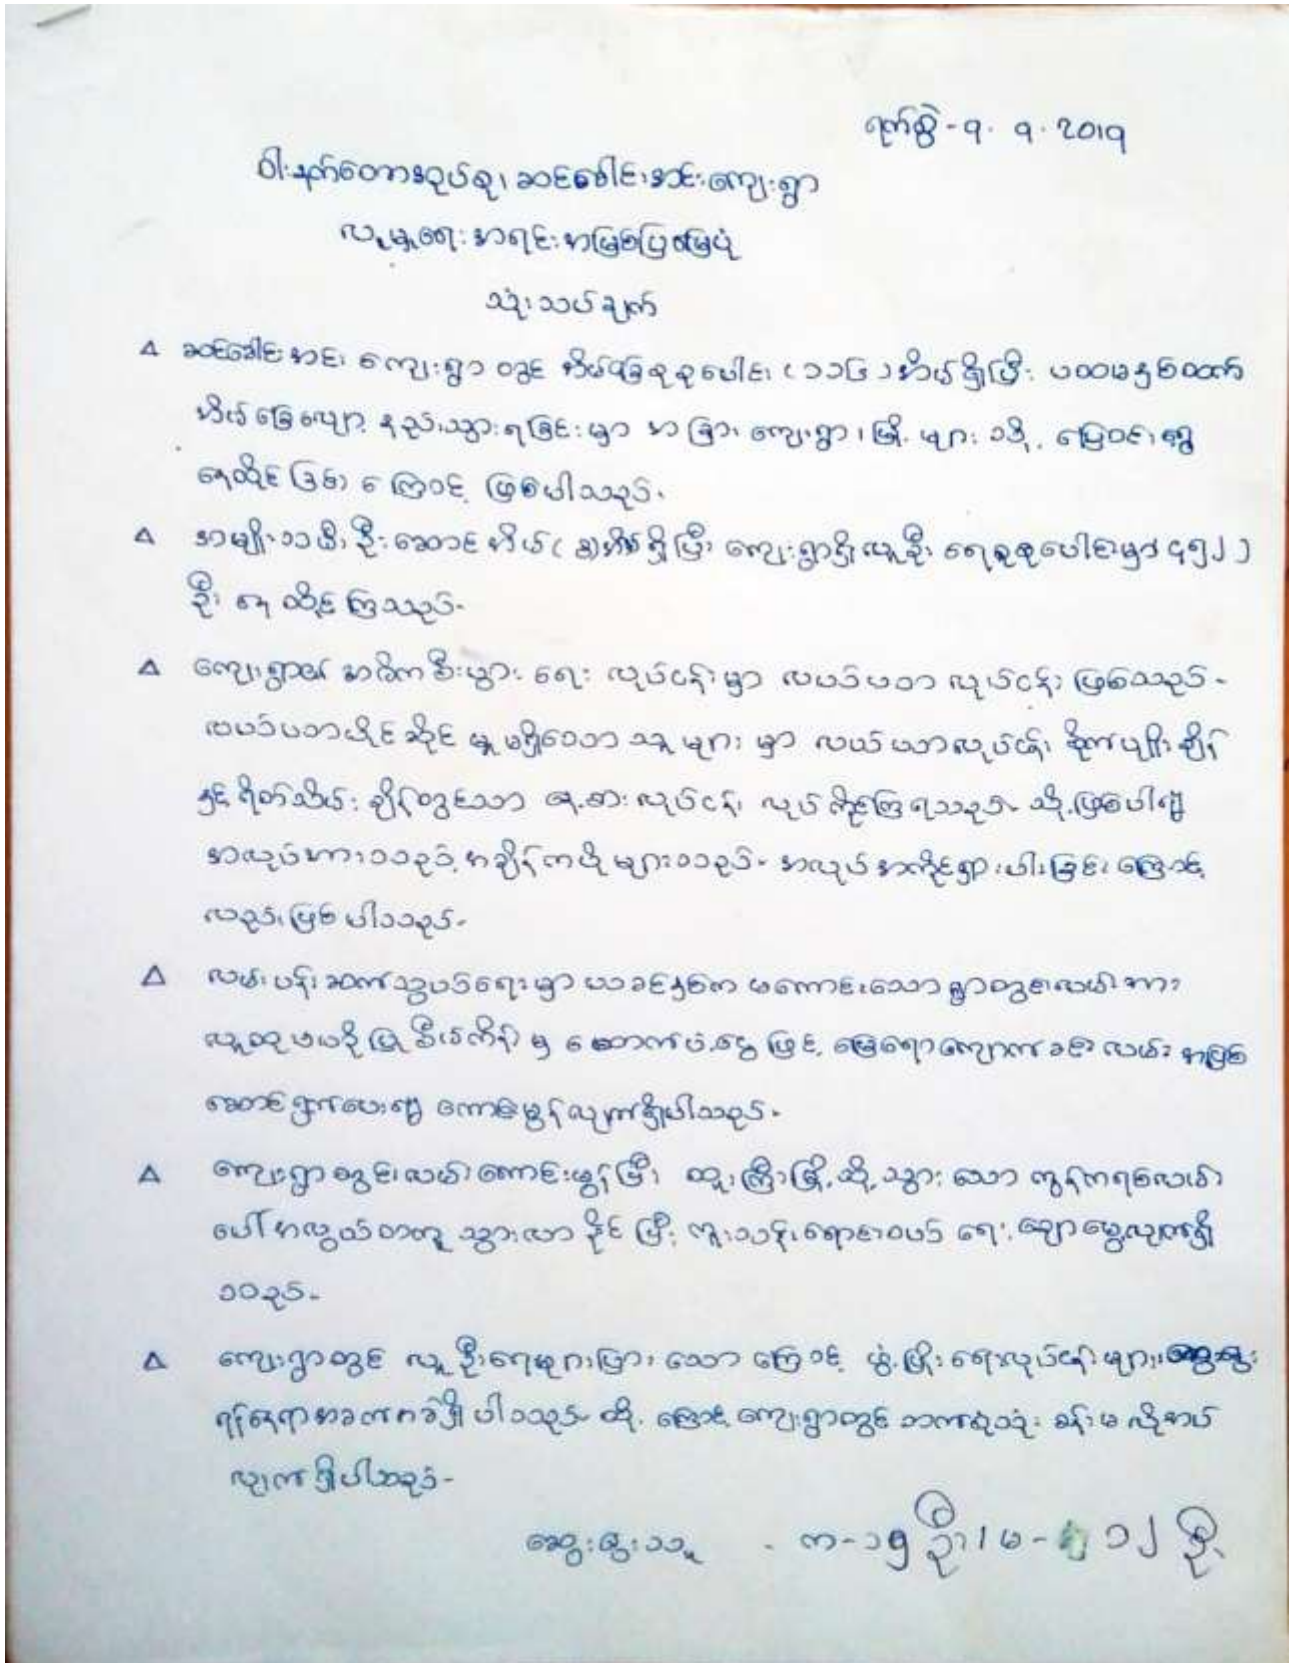 ရက်စွဲ - ၅. ၅. 2019
ဝါးနက်တောအုပ်စု၊ ဆင်ခေါင်းအင်းကျေးရွာ
လူမှုရေး အရင်းအမြစ်ပြမြေပုံ
သုံးသပ်ချက်
Δ ဆင်ခေါင်းအင်း ကျေးရွာ တွင် အိမ်ခြေစုစုပေါင်း (၁၁၆) အိမ်ရှိပြီး ပထမနှစ်ထက်
အိမ်ခြေလျော့ နည်းသွားရခြင်းမှာ အခြား ကျေးရွာ၊ မြို့ များ သို့ ပြောင်းရွှေ့
နေထိုင်ခြင်း ကြောင့် ဖြစ်ပါသည်။
Δ အမျိုးသမီး ဦးဆောင် အိမ် ( ) အိမ်ရှိပြီး ကျေးရွာရှိလူဦးရေစုစုပေါင်းမှာ (၄၅၂)
ဦး နေထိုင်ကြသည်။
Δ ကျေးရွာ၏ အဓိကစီးပွားရေး လုပ်ငန်းမှာ လယ်ယာ လုပ်ငန်း ဖြစ်သည်။
လယ်ယာပိုင်ဆိုင် မှု မရှိသော သူ များ မှာ လယ်ယာလုပ်ငန်း စိုက်ပျိုးချိန်
နှင့် ရိတ်သိမ်းချိန်တွင်သာ နေ့စားလုပ်ငန်း လုပ်ကိုင်ကြရသည်။ သို့ဖြစ်ပါ၍
အလုပ်အားသည့် အချိန်ကပို များသည်။ အလုပ်အကိုင်ရှားပါးခြင်းကြောင့်
လည်း ဖြစ်ပါသည်။
Δ လမ်းပန်းဆက်သွယ်ရေးမှာ ယခင်နှစ်က မကောင်းသော ရွာတွင်းလမ်းအား
လူထုဗဟိုပြု စီမံကိန်း မှ ထောက်ပံ့ငွေဖြင့် မြေရောကျောက်ခင်း လမ်း အဖြစ်
ဆောင်ရွက်ပေး၍ ကောင်းမွန်လျက်ရှိပါသည်။
Δ ကျေးရွာတွင်းလမ်း ကောင်းမွန်ပြီး ထူးကြီးမြို့သို့ သွားသော ကွန်ကရစ်လမ်း
ပေါ် အလွယ်တကူ သွားလာနိုင်ပြီး ကူးသန်းရောင်းဝယ်ရေး ချောမွေ့လျက်ရှိ
သည်။
Δ ကျေးရွာတွင် လူဦးရေများပြားသောကြောင့် ဖွံ့ဖြိုးရေးလုပ်ငန်းများ ဆွေးနွေး
ရန်နေရာအခက်အခဲရှိပါသည်။ ထို့ကြောင့် ကျေးရွာတွင် ဘက်စုံသုံး ခန်းမ လိုအပ်
လျက်ရှိပါသည်။
ဆွေးနွေးသူ - က - ၁၅ ဦး၊ မ - ၁၂ ဦး